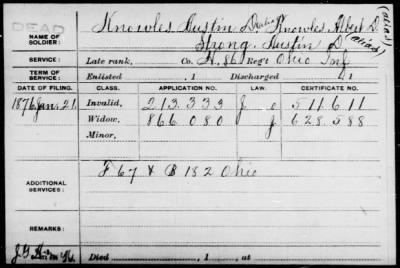 DEAD
NAME OF SOLDIER: Knowles, Austin D. (alias) Knowles, Albert D. (alias)
Strong, Austin D.
SERVICE: Late rank, Co. H. 86 Reg't Ohio Inf
TERM OF SERVICE: Enlisted , 1 Discharged , 1
DATE OF FILING. CLASS. APPLICATION NO. LAW. CERTIFICATE NO.
1876 Jan. 21 Invalid, 213.333 511.611
Widow, 866.080 628.588
Minor,
ADDITIONAL SERVICES: F 67 & B 182 Ohio
REMARKS:
Died , 1 , at